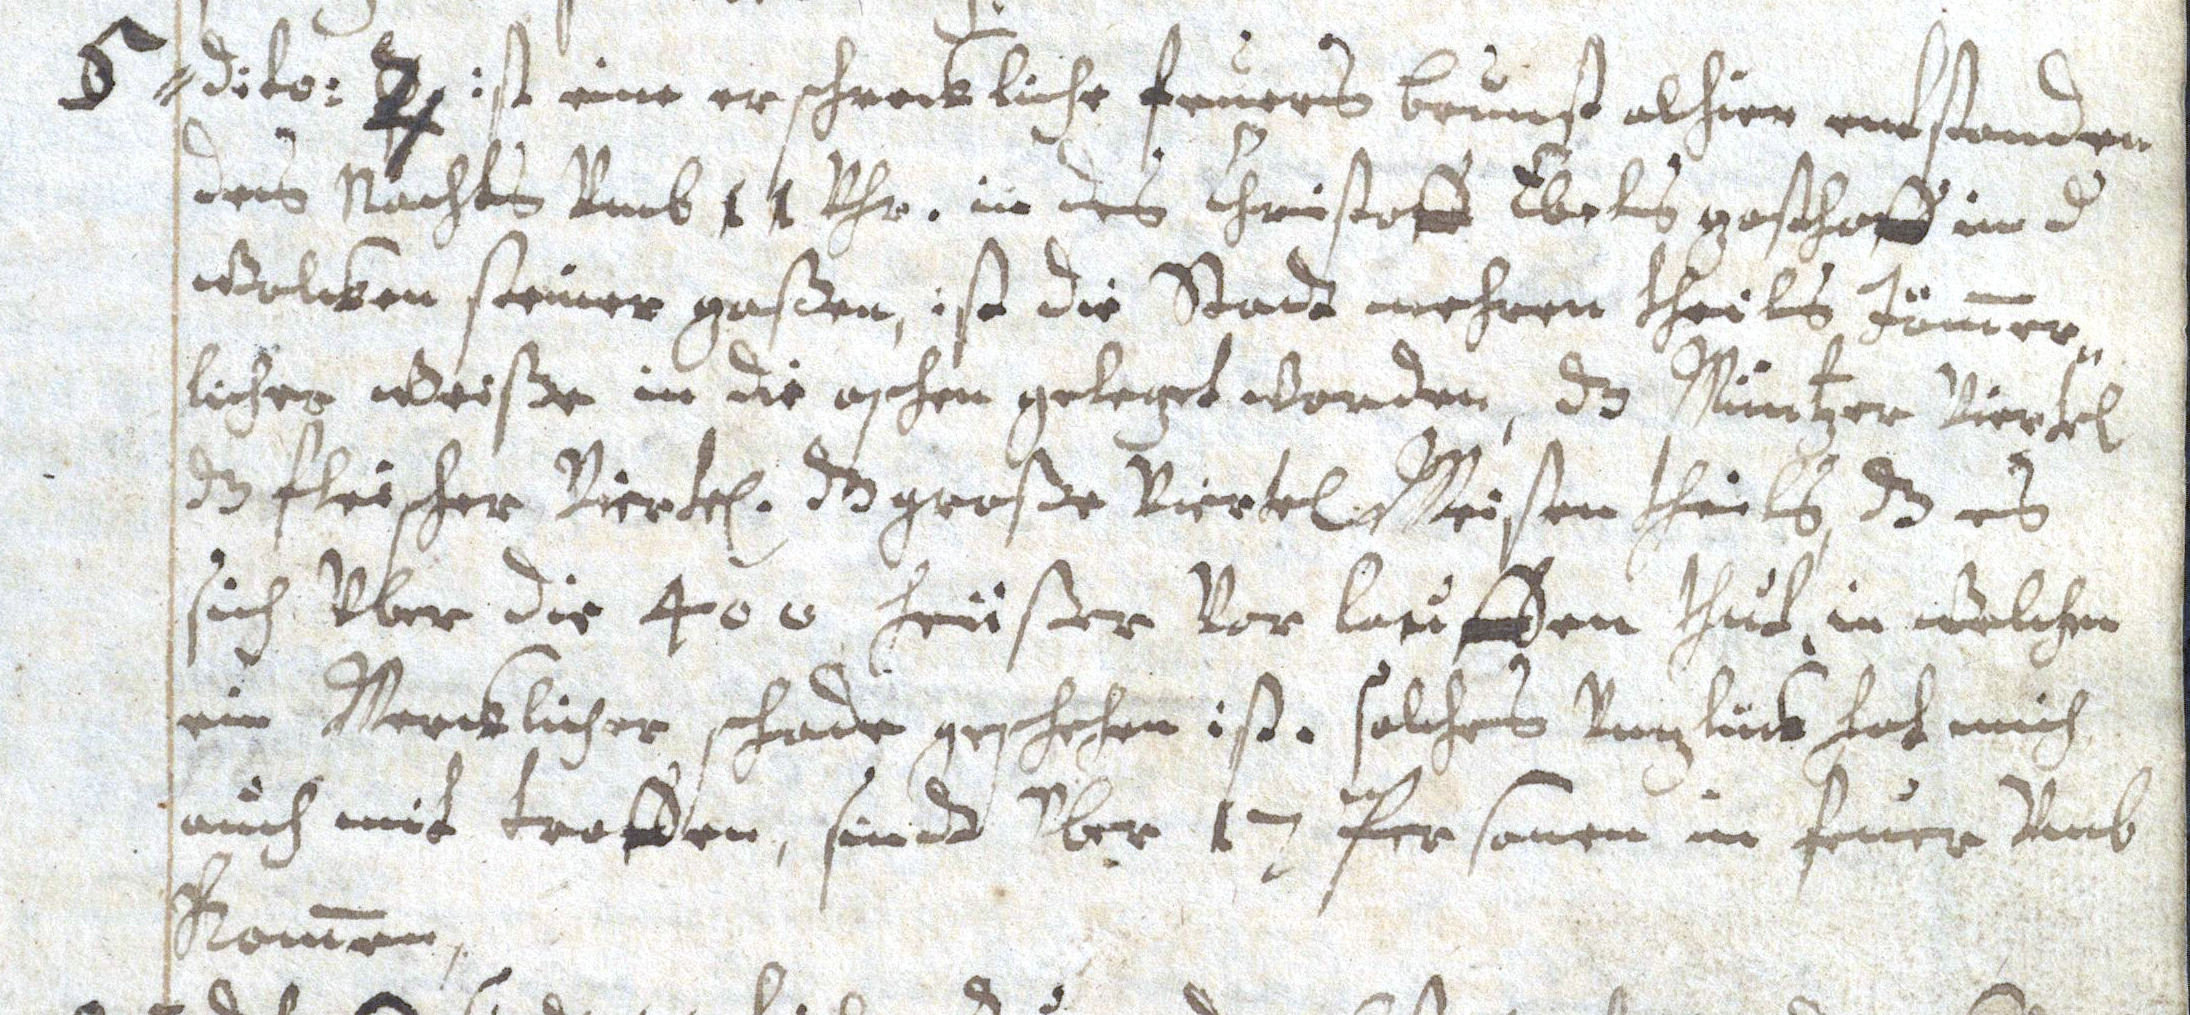 5 dito: ♃ ist eine erschreckliche feuers brunst alhier entstanden
des Nachts Vmb 11 Vhr. in des Christoff Ebets gasthoff in d
Wolcken steiner gaßen, ist die Stadt mehren theils Jäm̄er„
licher weiße in die aschen geleget worden, dz Müntzer Viertel
dz fleischer Viertel. dz große Viertel Meisen theils, dz es
sich Vber die 400 heüßer Vor lauffen thut, in welchen
ein Mercklicher schade geschehen ist. solches Vnglück hat mich
auch mit troffen, sindt Vber 17 Persanen in feuer Vmb
Kom̄en,